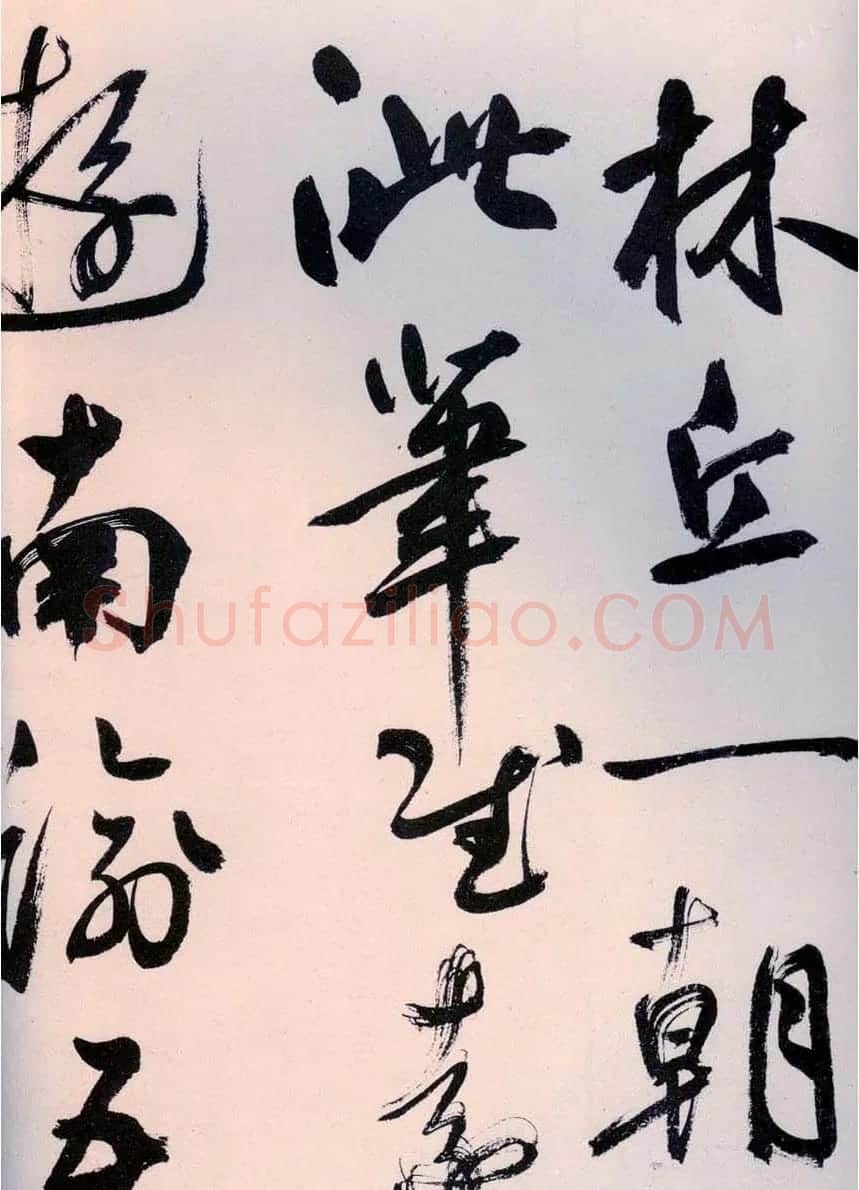 林丘一朝
泚筆
遊南五
Shufaziliao.COM